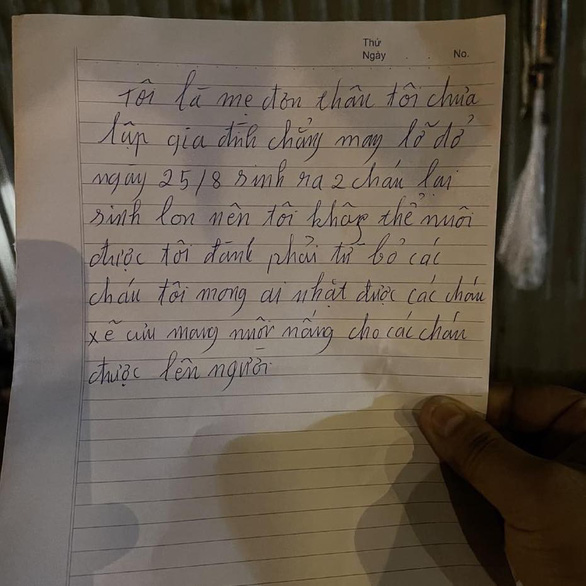 Thứ
Ngày No.
Tôi là mẹ đơn thân tôi chưa
lập gia đình chẳng may lỡ dở
ngày 25/8 sinh ra 2 cháu lại
sinh lon nên tôi không thể nuôi
được tôi đành phải từ bỏ các
cháu tôi mong ai nhặt được các cháu
xẽ cưu mang nuôi nấng cho các cháu
được lên người